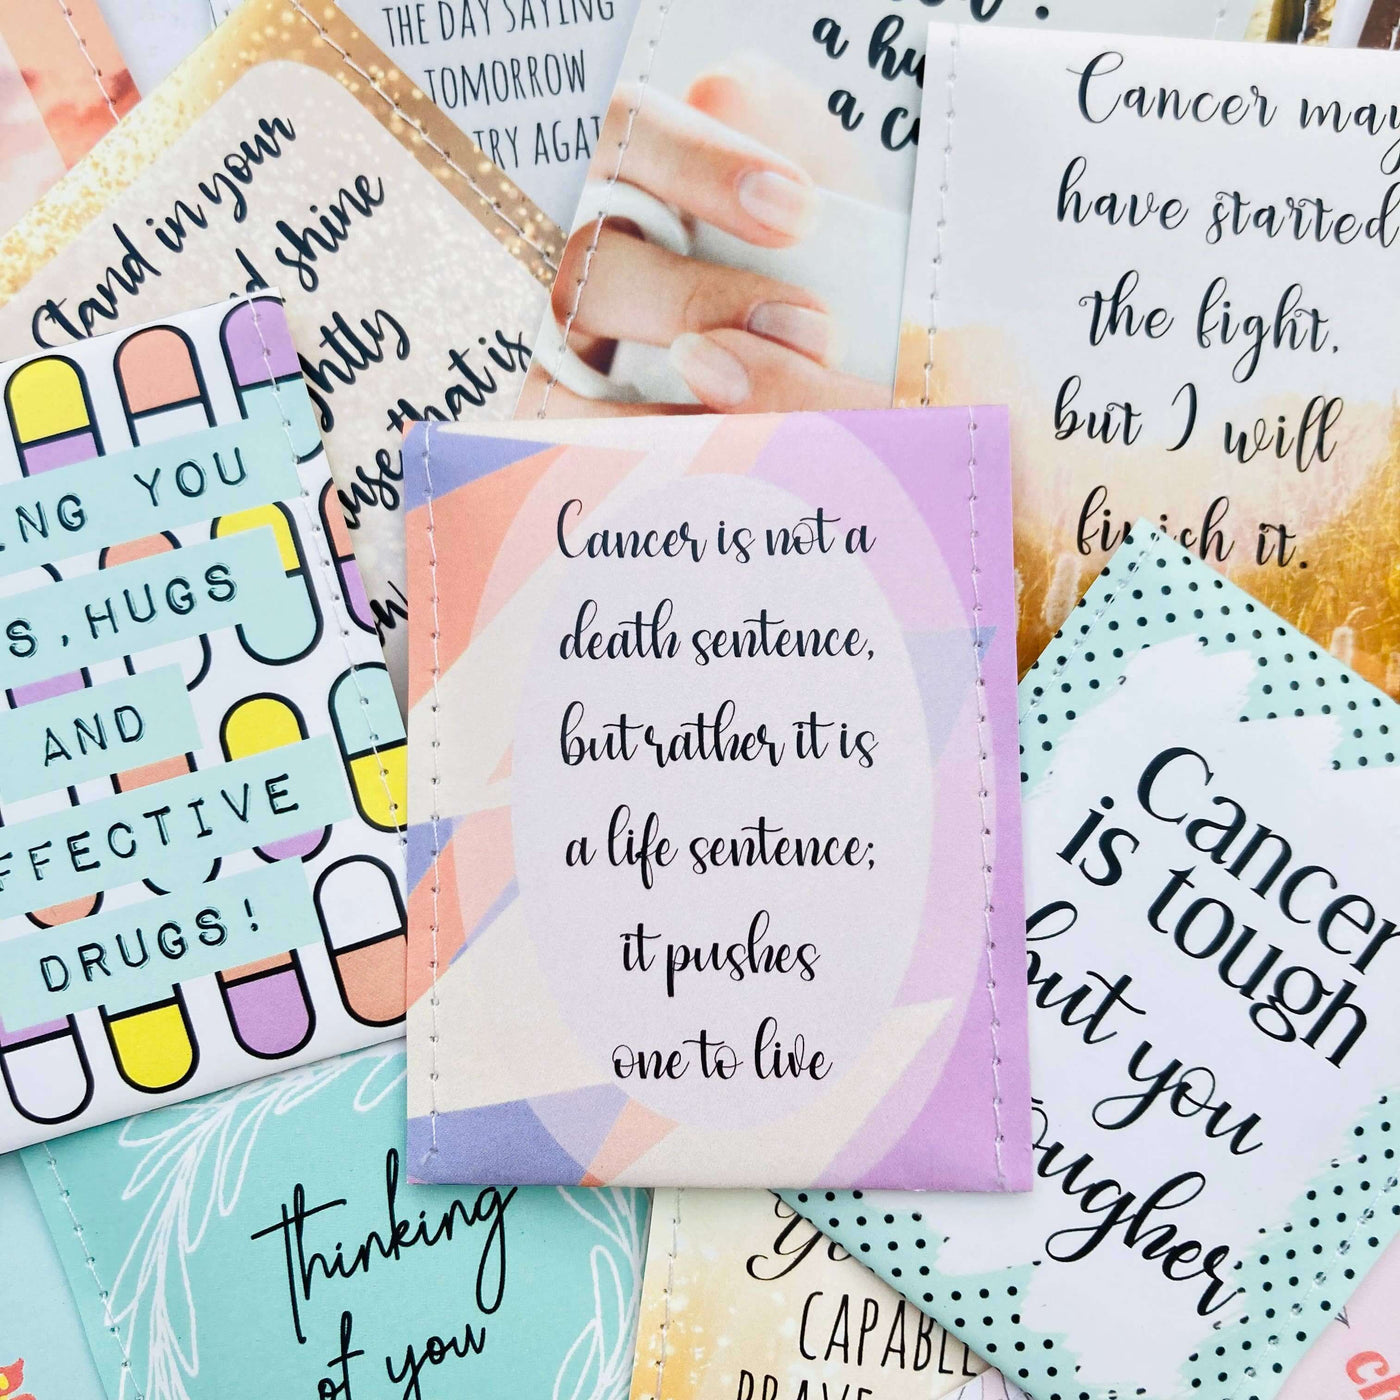 THE DAY SAYING
TOMORROW
TRY AGAI
a hu
a c
Cancer may
have started
the fight,
but I will
finish it.
Stand in your
nd shine
ghtly
ause that is
NG YOU
S, HUGS
AND
FFECTIVE
DRUGS!
Cancer is not a
death sentence,
but rather it is
a life sentence;
it pushes
one to live
Cancer
is tough
but you
tougher
Thinking
of you
Yo
CAPABLE
BRAVE